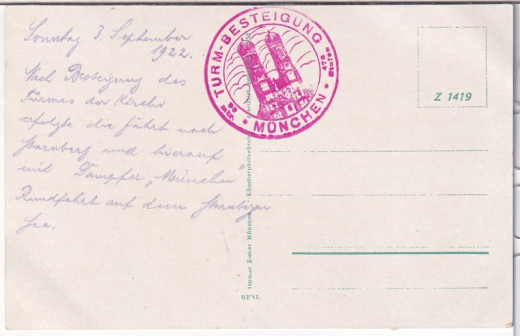 Sonntag 3. September
1922.
Nach Besteigung des
Turmes der Kirche
erfolgte die Fahrt nach
Starnberg und hierauf
mit Dampfer „München"
Rundfahrt auf dem Starnberger
See.
TURM-BESTEIGUNG
MÜNCHEN
Z 1419
Ottmar Zieher München